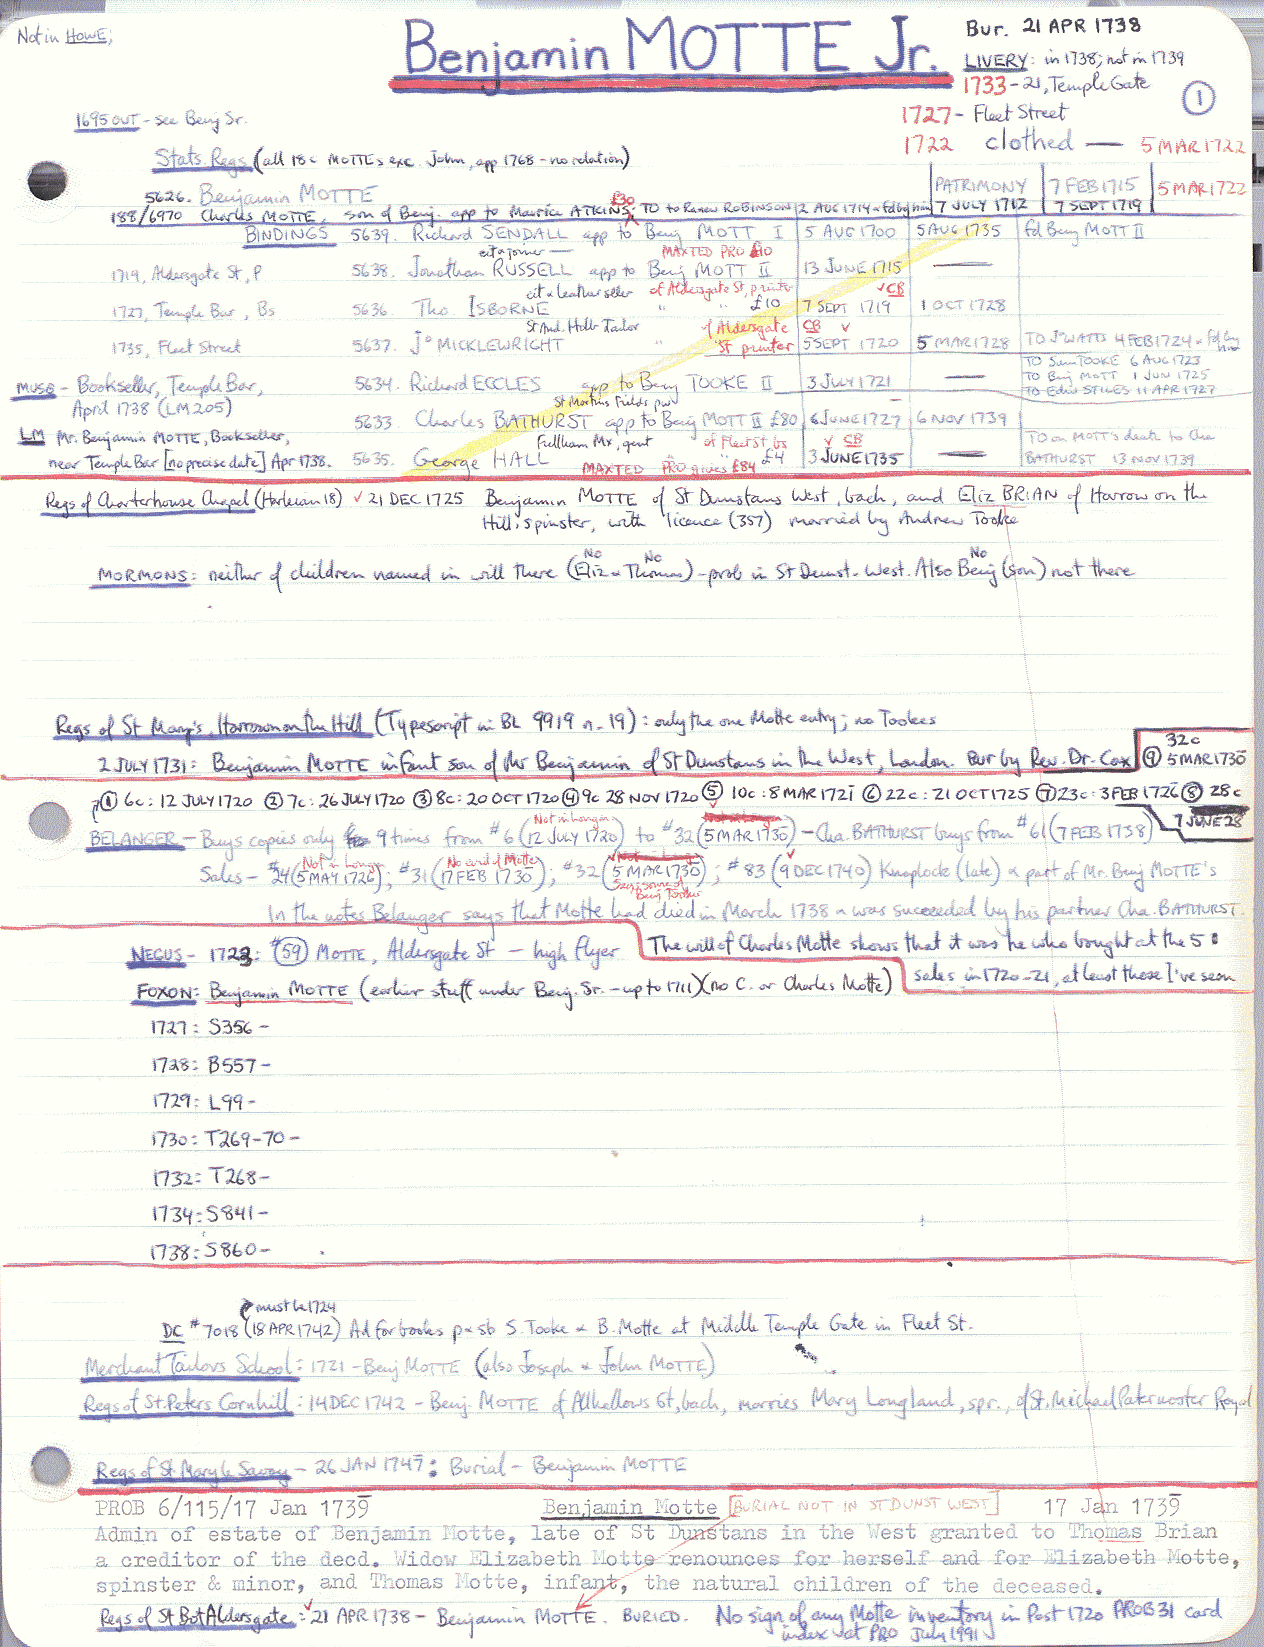 Not in HOWE;
Benjamin MOTTE Jr.
Bur. 21 APR 1738
LIVERY: in 1738; not in 1739
1733-21, Temple Gate
①
1727- Fleet Street
1722 clothed — 5 MAR 1722
1695 OUT - see Benj Sr.
Stats. Regs (all 18c MOTTEs exc. John, app 1768 - no relation)
5626. Benjamin MOTTE PATRIMONY 7 FEB 1715 5 MAR 1722
£30
188/6970 Charles MOTTE, son of Benj. app to Maurice ATKINS; TO to Ranew ROBINSON 2 AUG 1714 7 JULY 1712 7 SEPT 1719
BINDINGS 5639. Richard SENDALL app to Benj MOTT I 5 AUG 1700 5 AUG 1735 fd Benj MOTT II
cit & joiner — MAXTED PRO £10
1719, Aldersgate St, P 5638. Jonathan RUSSELL app to Benj MOTT II 13 JUNE 1715 —
cit & leatherseller of Aldersgate St, printer ✓ CB
1727, Temple Bar, Bs 5636. Tho ISBORNE " " £10 7 SEPT 1719 1 OCT 1728
St And. Holb Tailor of Aldersgate CB ✓
1735, Fleet Street 5637. Jo MICKLEWRIGHT " St printer 5 SEPT 1720 5 MAR 1728 TO Jn WATTS 4 FEB 1724
TO Sam TOOKE 6 AUG 1723
MUSG - Bookseller, Temple Bar, 5634. Richard ECCLES app to Benj TOOKE II 3 JULY 1721 — TO Benj MOTT 1 JUN 1725
April 1738 (LM 205) St Martins Fields TO Edw STILES 11 APR 1727
5633. Charles BATHURST app to Benj MOTT II £80 6 JUNE 1727 6 NOV 1739
LM Mr. Benjamin MOTTE, Bookseller, Fullham Mx, gent of Fleet St, bs ✓ CB TO on MOTT's death to Cha
near Temple Bar [no precise date] Apr 1738. 5635. George HALL " £4 3 JUNE 1735 — BATHURST 13 NOV 1739
MAXTED PRO gives £84
Regs of Charterhouse Chapel (Harleian 18) ✓ 21 DEC 1725 Benjamin MOTTE of St Dunstans West, bach, and Eliz BRIAN of Harrow on the
Hill, spinster, with licence (357) married by Andrew Tooke
No No No
MORMONS: neither of children named in will there (Eliz & Thomas) - prob in St Dunst. West. Also Benj (son) not there
Regs of St Mary's, Harrow on the Hill (Typescript in BL 9919 n. 19): only the one Motte entry; no Tookes
32c
2 JULY 1731: Benjamin MOTTE infant son of Mr Benjamin of St Dunstans in the West, London. Bur by Rev. Dr. Cox ⑨ 5 MAR 1730
① 6c: 12 JULY 1720 ② 7c: 26 JULY 1720 ③ 8c: 20 OCT 1720 ④ 9c 28 NOV 1720 ⑤ 10c: 8 MAR 1721 ⑥ 22c: 21 OCT 1725 ⑦ 23c: 3 FEB 1726 ⑧ 28c
Not in Longer Not in Longer 7 JUNE 28
BELANGER - Buys copies only 9 times from #6 (12 JULY 1720) to #32 (5 MAR 1730) - Cha. BATHURST buys from #61 (7 FEB 1738)
Not in Longer No word of Motte Not in Longer
Sales - #24 (5 MAY 1726); #31 (17 FEB 1730); #32 (5 MAR 1730); #83 (9 DEC 1740) Knaplock (late) & part of Mr. Benj MOTTE's
Says some of Benj Tooke's
In the notes Belanger says that Motte had died in March 1738 & was succeeded by his partner Cha. BATHURST.
NEGUS - 1723: #(59) MOTTE, Aldersgate St - high flyer The will of Charles Motte shows that it was he who bought at the 5
FOXON: Benjamin MOTTE (earlier stuff under Benj. Sr. - up to 1711) (no C. or Charles Motte) sales in 1720-21, at least those I've seen
1727: S356 -
1728: B557 -
1729: L99 -
1730: T269-70 -
1732: T268 -
1734: S841 -
1738: S860 -
must be 1724
DC #7018 (18 APR 1742) Ad for books p & sb S. Tooke & B. Motte at Middle Temple Gate in Fleet St.
Merchant Tailors School: 1721 - Benj MOTTE (also Joseph & John MOTTE)
Regs of St. Peters Cornhill: 14 DEC 1742 - Benj. MOTTE of Allhallows Gt, bach, marries Mary Longland, spr., of St. Michael Paternoster Royal
Regs of St Mary le Savoy - 26 JAN 1747: Burial - Benjamin MOTTE
PROB 6/115/17 Jan 1739 Benjamin Motte [BURIAL NOT IN ST DUNST WEST] 17 Jan 1739
Admin of estate of Benjamin Motte, late of St Dunstans in the West granted to Thomas Brian
a creditor of the decd. Widow Elizabeth Motte renounces for herself and for Elizabeth Motte,
spinster & minor, and Thomas Motte, infant, the natural children of the deceased.
Regs of St Bot Aldersgate: ✓ 21 APR 1738 - Benjamin MOTTE. BURIED. No sign of any Motte inventory in Post 1720 PROB 31 card
index at PRO July 1991